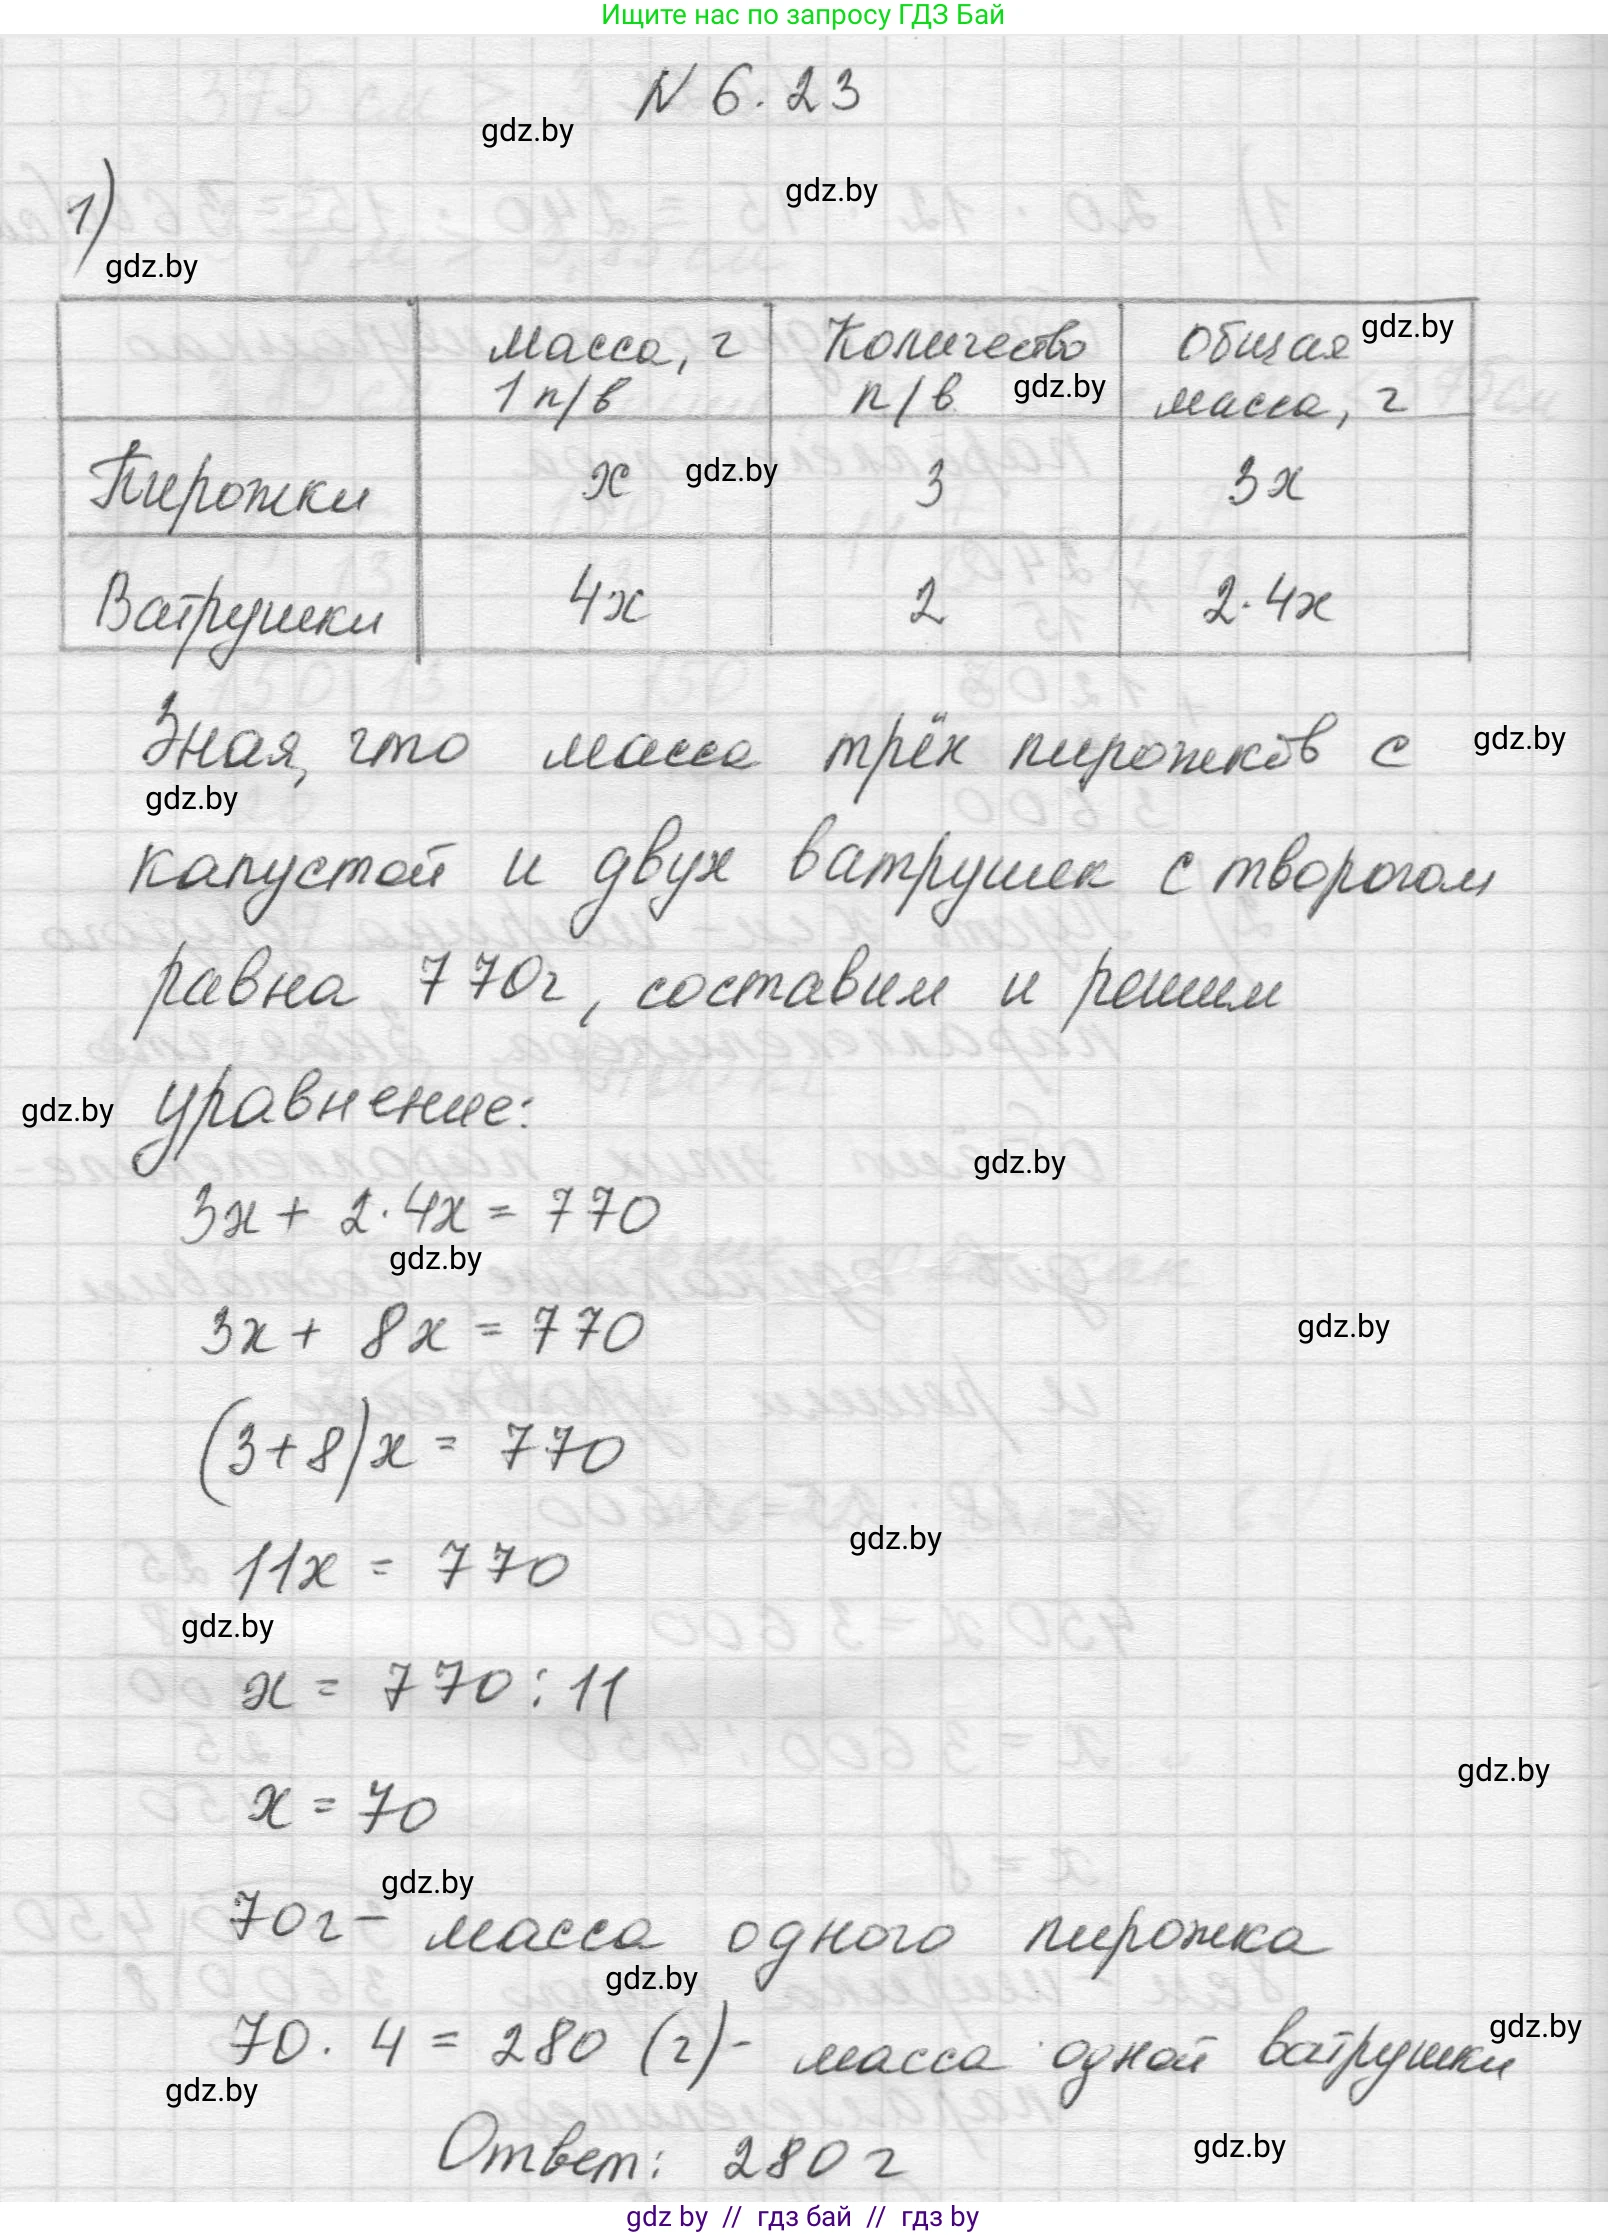 Ищите нас по запросу ГДЗ Бай
N 6.23
gdz.by
gdz.by
1)
gdz.by
Масса, г 1 п/в
Количество п/в
Общая масса, г
gdz.by
gdz.by
Пирожки x 3 3x
gdz.by
Ватрушки 4x 2 2·4x
Зная, что масса трёх пирожков с
gdz.by
gdz.by
капустой и двух ватрушек с творогом
равна 770г, составим и решим
уравнение:
gdz.by
gdz.by
3x + 2·4x = 770
gdz.by
3x + 8x = 770
gdz.by
(3+8)x = 770
11x = 770
gdz.by
gdz.by
x = 770 : 11
gdz.by
x = 70
gdz.by
70г - масса одного пирожка
gdz.by
70 · 4 = 280 (г) - масса одной ватрушки
gdz.by
gdz.by
Ответ: 280 г
gdz.by
gdz by // гдз бай // гдз by